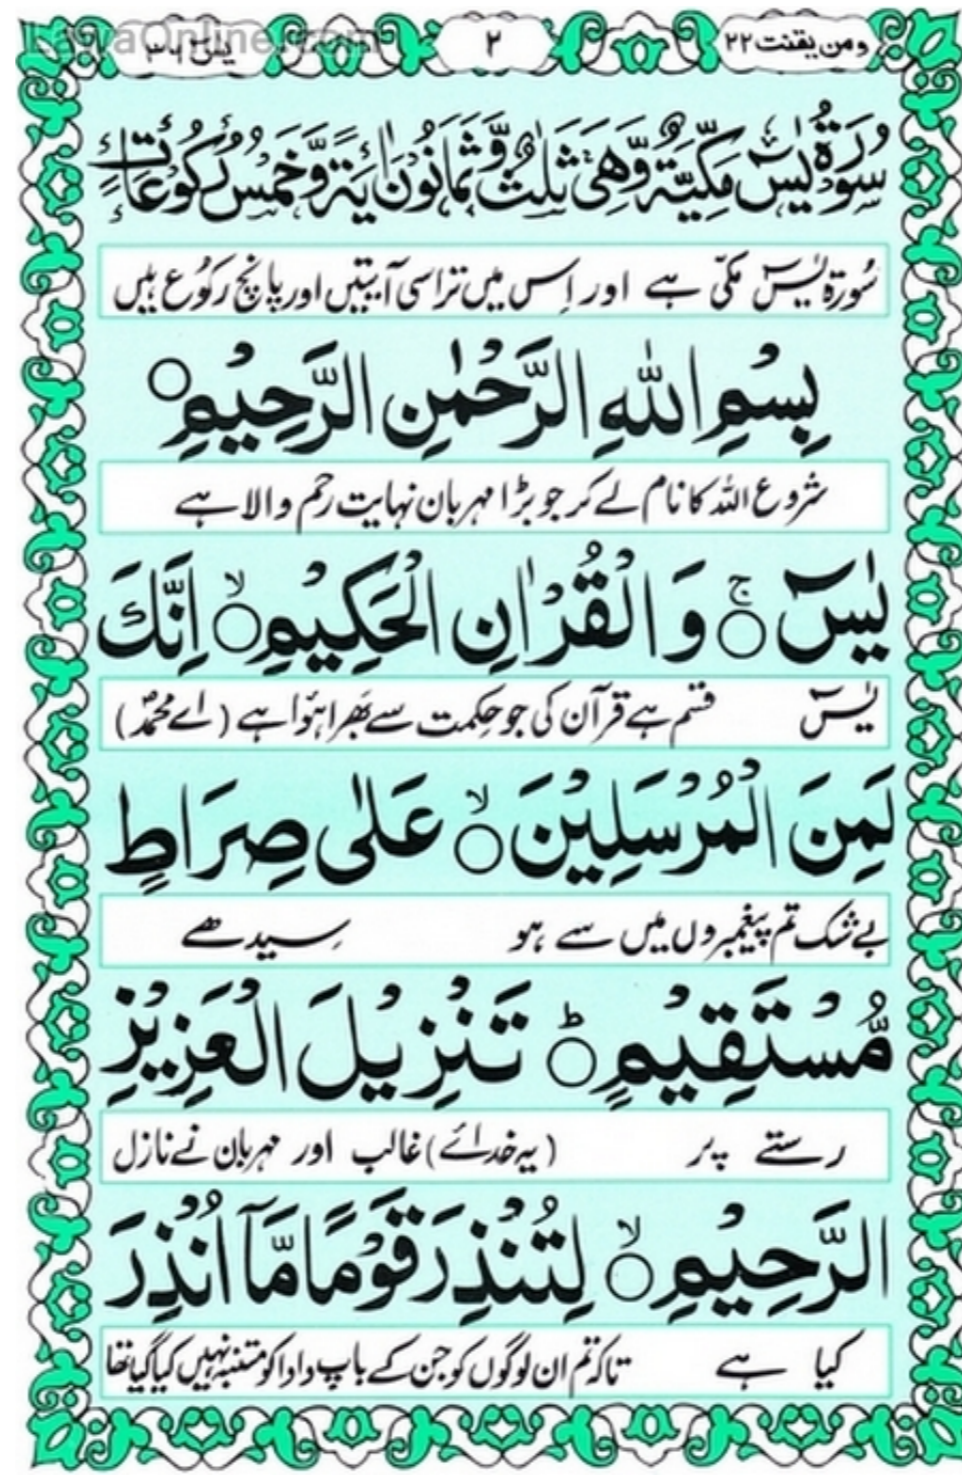 LawaOnline.com
ومن یقنت ۲۲
۲
یٰسٓ ۳۶
سُوْرَةُ يٰسٓ مَكِّيَّةٌ وَّهِيَ ثَلٰثٌ وَّثَمَانُوْنَ اٰيَةً وَّخَمْسُ رُكُوْعَاتٍ
سُورۃ یٰسٓ مکّی ہے اور اِس میں تراسی آیتیں اور پانچ رکوُع ہیں
بِسْمِ اللّٰهِ الرَّحْمٰنِ الرَّحِيْمِ ○
شروع اللہ کا نام لے کر جو بڑا مہربان نہایت رحم والا ہے
يٰسٓ ○ۚ وَالْقُرْاٰنِ الْحَكِيْمِ ○ۙ اِنَّكَ
یٰسٓ قسم ہے قرآن کی جو حکمت سے بھَرا ہوُا ہے (اے محمدؐ)
لَمِنَ الْمُرْسَلِيْنَ ○ۙ عَلٰى صِرَاطٍ
بے شک تم پیغمبروں میں سے ہو سِیدھے
مُّسْتَقِيْمٍ ○ؕ تَنْزِيْلَ الْعَزِيْزِ
رستے پر (یہ خدائے) غالب اور مہربان نے نازل
الرَّحِيْمِ ○ۙ لِتُنْذِرَ قَوْمًا مَّآ اُنْذِرَ
کیا ہے تاکہ تم ان لوگوں کو جن کے باپ دادا کو متنبہ نہیں کیا گیا تھا